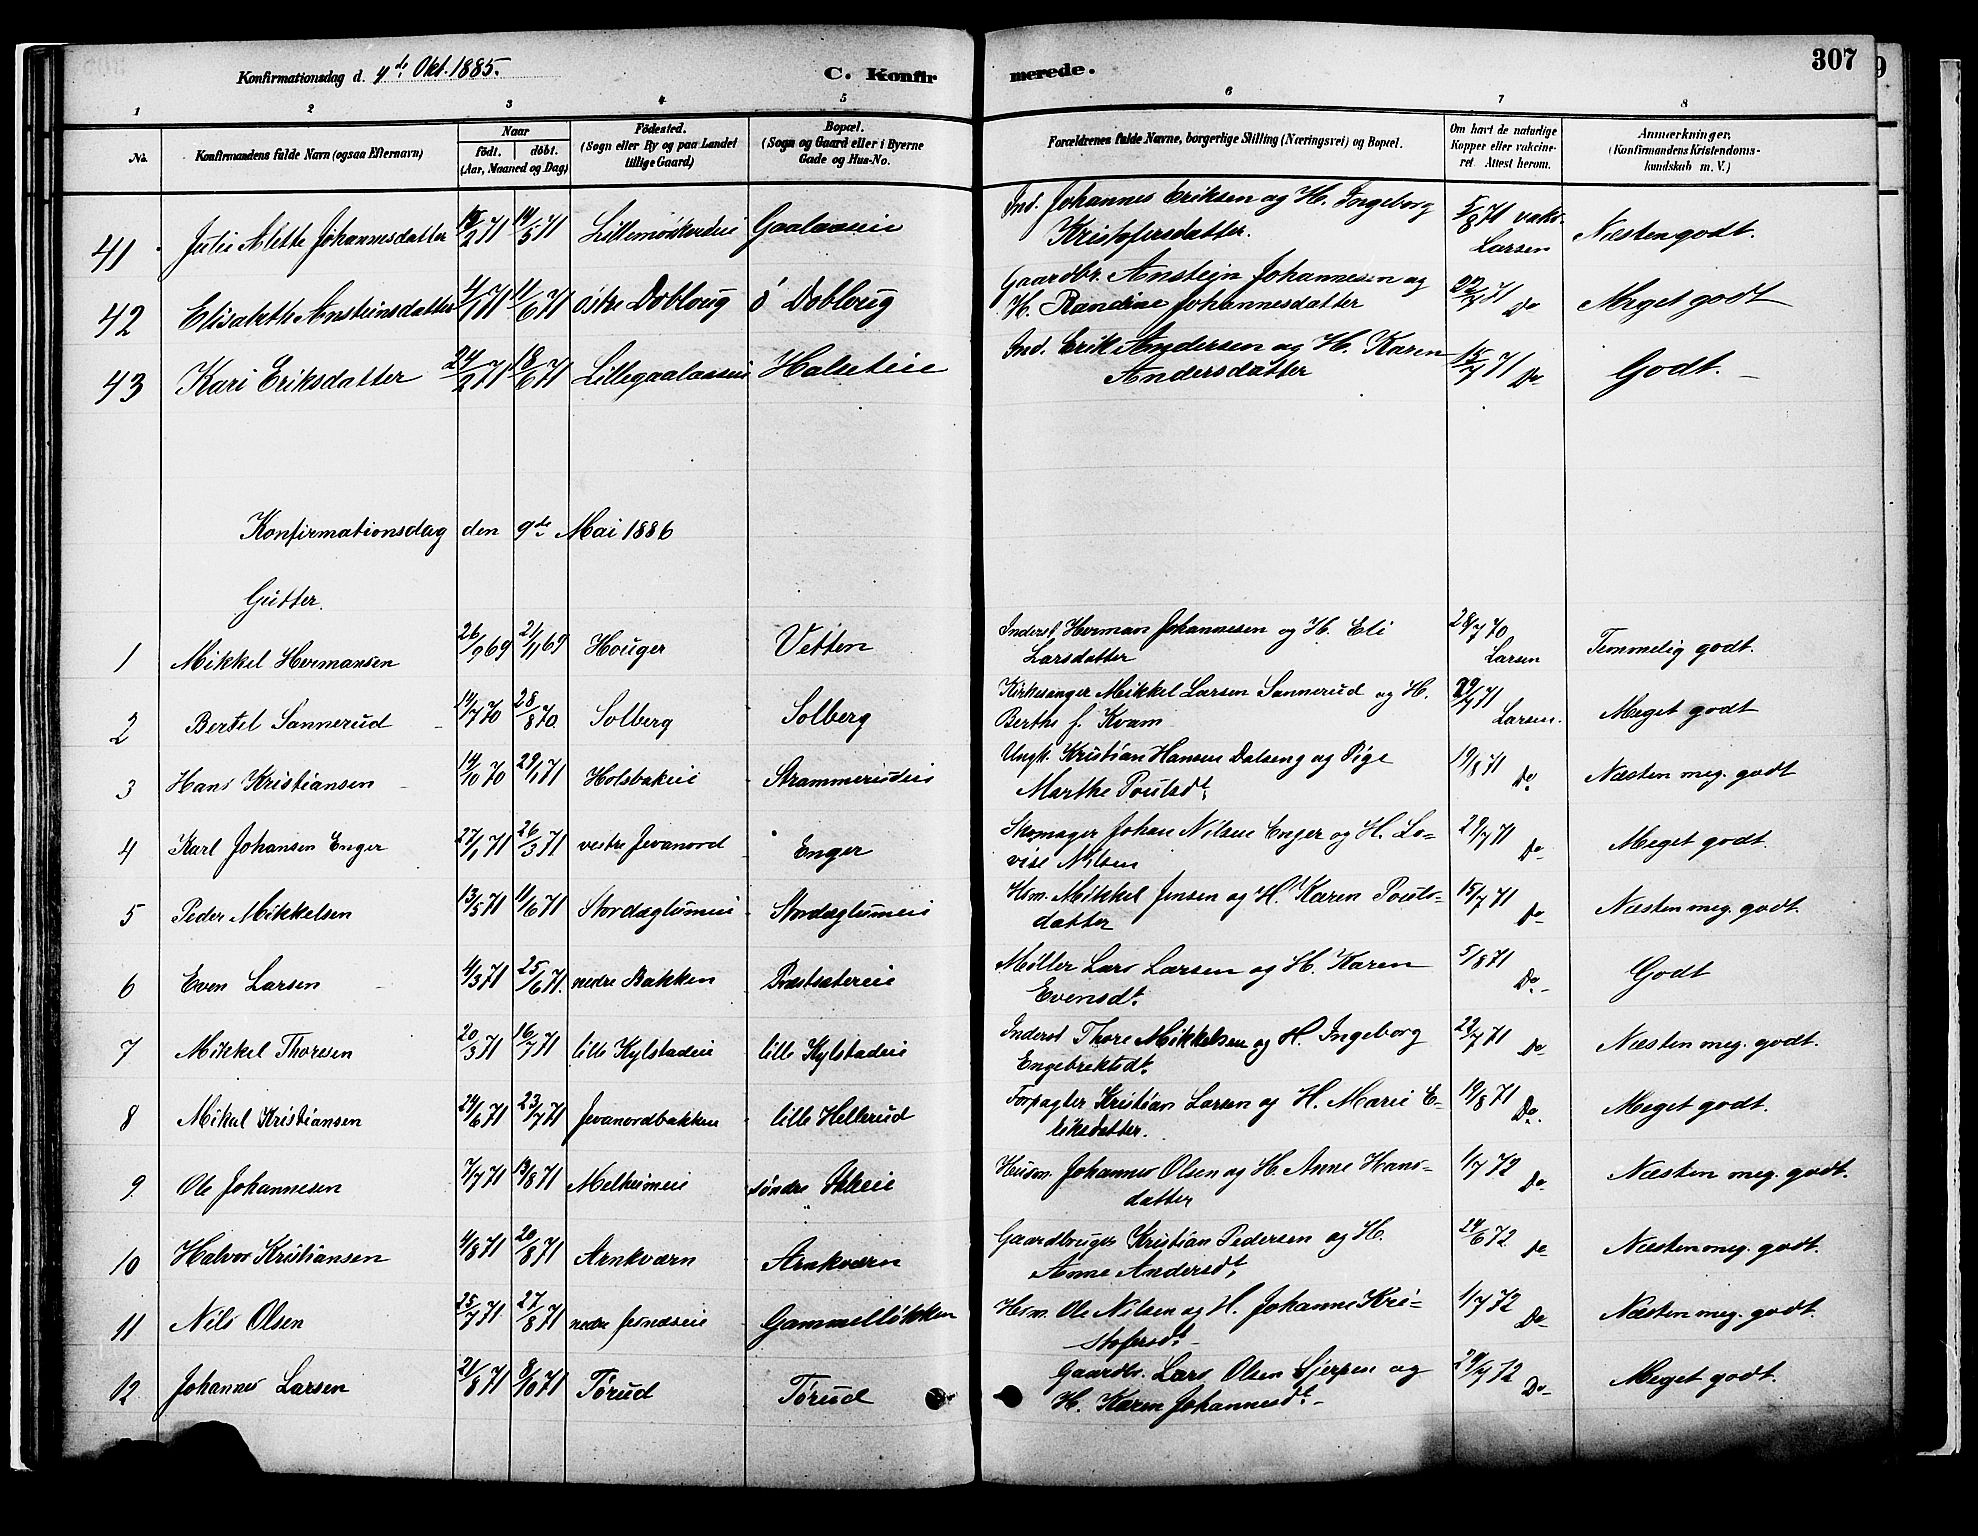 Konfirmationsdag d. 4de Okt. 1885.
C. Konfirmerede.
307
1 2 3 4 5 6 7 8
No.
Konfirmandens fulde Navn (ogsaa Efternavn)
Naar
født. døbt.
(Aar, Maaned og Dag)
Fødested.
(Sogn eller By og paa Landet
tillige Gaard)
Bopæl.
(Sogn og Gaard eller i Byerne
Gade og Hus-No.
Forældrenes fulde Navne, borgerlige Stilling (Næringsvei) og Bopæl.
Om havt de naturlige
Kopper eller vakcine-
ret. Attest herom.
Anmærkninger,
(Konfirmandens Kristendoms-
kundskab m. V.)
41 Julie Alette Johannesdatter /2 71 14/5 71 Lillemøskerdeie Gaalaaseie Ind. Johannes Eriksen og H. Ingeborg
Kristofersdatter. 5/8 71 vaks. Larsen Næsten godt.
42 Elisabeth Ansteinsdatter 4/1 71 11/6 71 østre Dobloug ø Dobloug Gaardbr. Anstein Johannesen og
H. Randine Johannesdatter 22/7 71 Do Meget godt
43 Kari Eriksdatter 24/2 71 18/6 71 Lillegaalaaseie Halsteie Ind. Erik Andersen og H. Karen
Andersdatter 15/7 71 Do Godt. –
Konfirmationsdag den 9de Mai 1886
Gutter.
1 Mikkel Hermansen 26/9 69 21/11 69 Houger Vetten Inderst Herman Johannesen og H. Eli
Larsdatter 28/7 70 Larsen Temmelig godt.
2 Bertel Sannerud 14/7 70 28/8 70. Solberg Solberg Kirkesanger Mikkel Larsen Sannerud og H.
Berthe f. Kvam 29/7 71 Larsen. Meget godt
3 Hans Kristiansen 14/10 70 29/1 71 Holsbakeie Strammerudeie Ungk. Kristian Hansen Dalseng og Pige
Marthe Poulsdt. 19/8 71 Do Næsten meg. godt
4 Karl Johansen Enger 27/1 71 26/3 71 vestre Jevanord Enger Skomager Johan Nilsen Enger og H. Lo-
vise Nilsen 29/7 71 Do Meget godt.
5 Peder Mikkelsen 13/5 71 11/6 71 Stordaglumeie Stordaglumeie Hsm. Mikkel Jensen og H. Karen Pouls-
datter 15/7 71 Do Næsten meg. godt.
6 Even Larsen 4/3 71 25/6 71. nedre Bakken Præstsætereie Møller Lars Larsen og H. Karen
Evensdt. 5/8 71 Do Godt
7 Mikkel Thoresen 20/3 71 16/7 71 lille Kylstadeie lille Kylstadeie Inderst Thore Mikkelsen og H. Ingeborg
Engebrektsdt. 22/7 71 Do Næsten meg. godt.
8 Mikal Kristiansen 24/6 71 23/7 71 Jevanordbakken lille Hellerud Forpagter Kristian Larsen og H. Marie E-
riksdatter. 19/8 71 Do. Meget godt.
9 Ole Johannesen 7/7 71 13/8 71 Melheimeie søndre Husm. Johannes Olsen og H. Anne Hans-
datter 1/7 72 Do Næsten meg. godt.
10 Halvor Kristiansen 4/8 71 20/8 71 Arnkværn Arnkværn Gaardbruger Kristian Pedersen og H.
Anne Andersdt. 24/6 72 Do Næsten meg. godt.
11 Nils Olsen 25/7 71 27/8 71 nedre Gammelløkken Hsm. Ole Nilsen og H. Johanne Kri-
stofersdt. 1/7 72 Do Næsten meg. godt.
12 Johannes Larsen 21/8 71 8/10 71 Tørud Tørud Gaardbr. Lars Olsen Sjerpen og
H. Karen Johannesdt. 29/7 72 Do Meget godt.